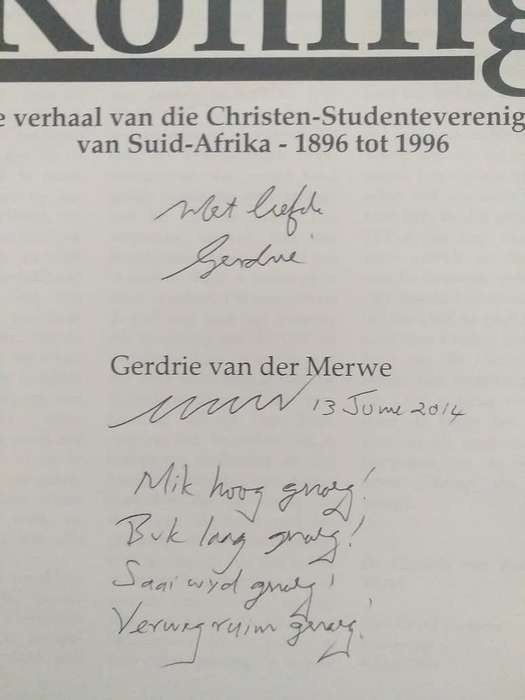 Koning
e verhaal van die Christen-Studenteverenig
van Suid-Afrika - 1896 tot 1996
Met liefde
Gerdrie
Gerdrie van der Merwe
13 June 2014
Mik hoog genoeg!
Buk lang genoeg!
Saai wyd genoeg!
Verwag ruim genoeg!